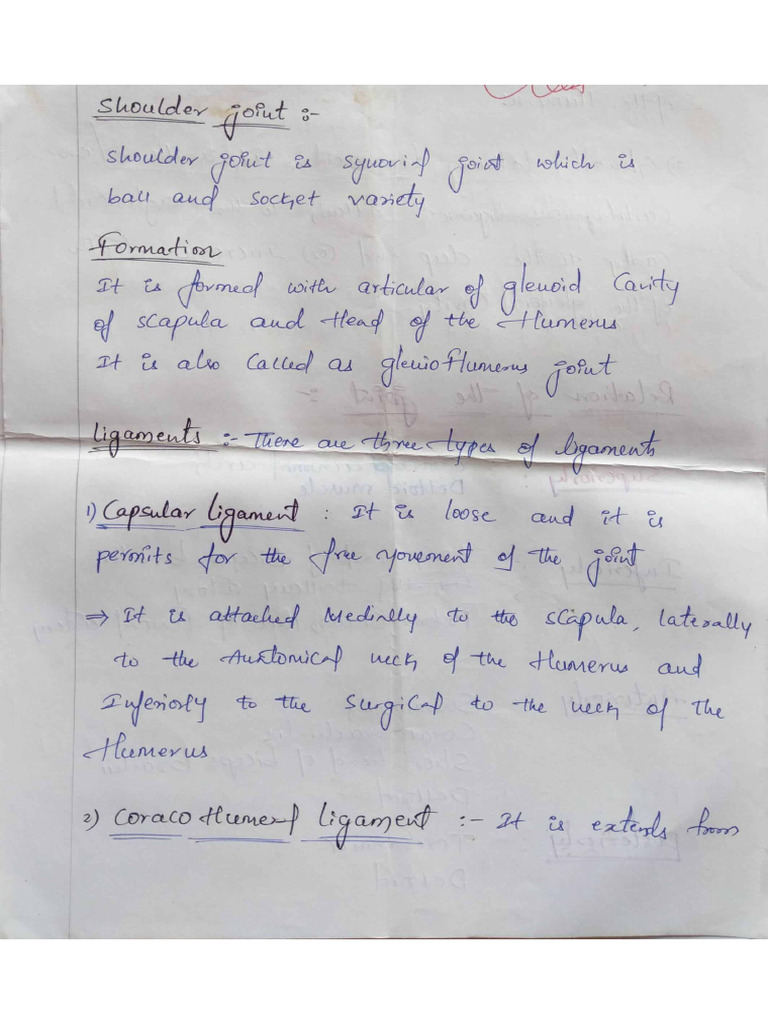 Shoulder joint :-
Shoulder joint is synovial joint which is
ball and socket variety
Formation
It is formed with articular of glenoid Cavity
of scapula and Head of the Humerus
It is also called as glenioHumerus joint
Ligaments :- There are three types of ligaments
1) Capsular Ligament : It is loose and it is
permits for the free movement of the joint
⇒ It is attached Medially to the scapula, laterally
to the Anatomical neck of the Humerus and
Inferiorly to the Surgical to the neck of the
Humerus
2) Coraco Humeral Ligament :- It is extends from